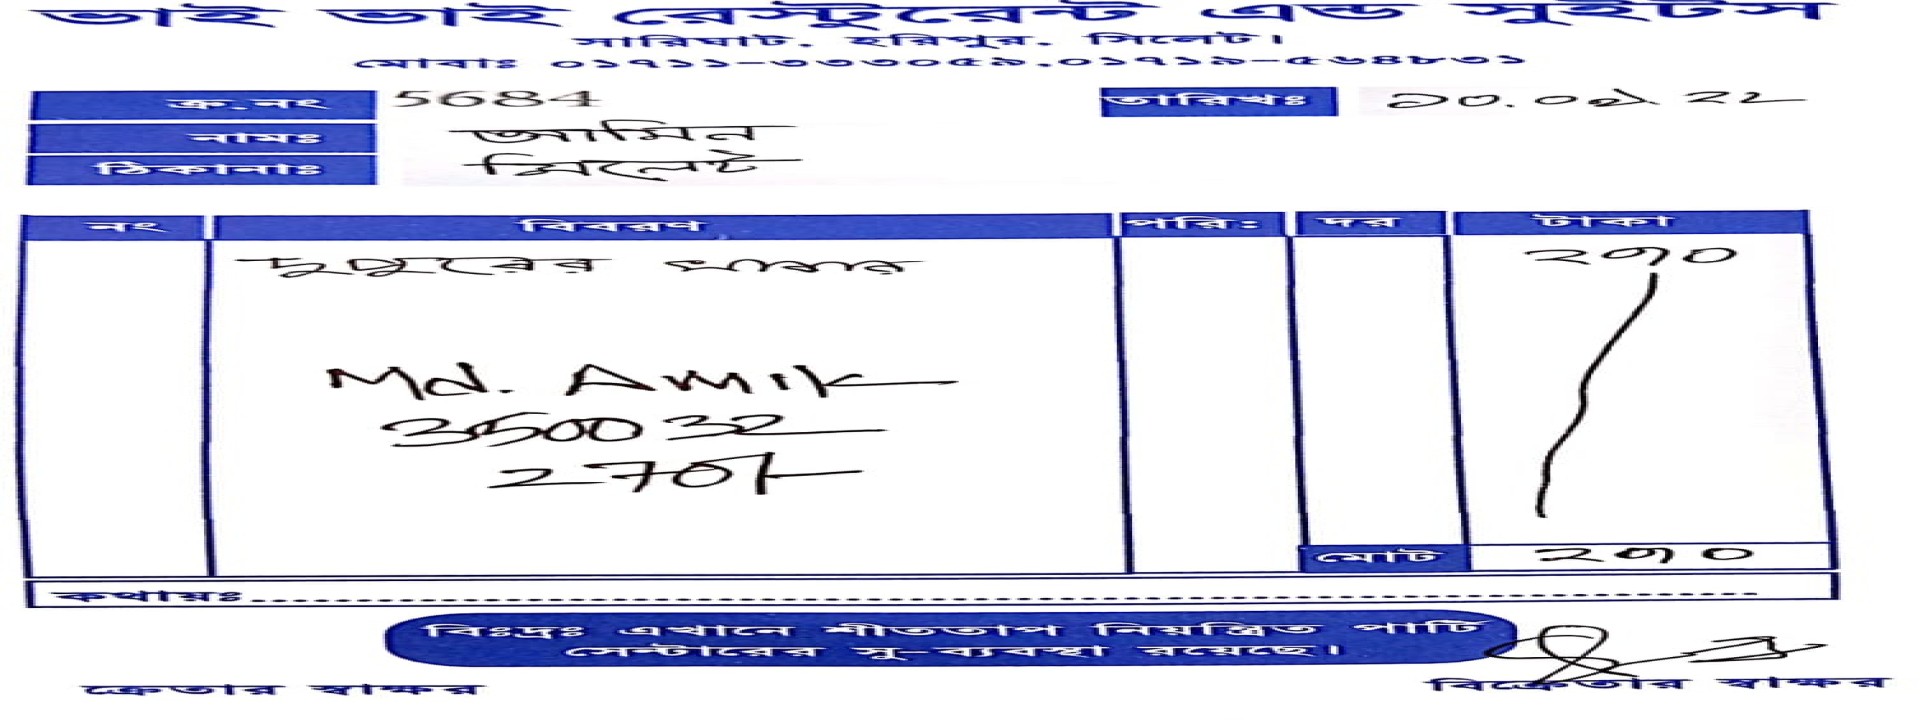 ভাই ভাই রেস্টুরেন্ট এন্ড সুইটস
সারিঘাট, হরিপুর, সিলেট।
মোবাঃ ০১৭১১-৩৩৩০৫৯,০১৭১৯-৫৬৪৮৩১
ক্র.নং 5684 তারিখঃ ১০.০৯ 22
নামঃ আমিন
ঠিকানাঃ সিলেট
নং বিবরণ পরি: দর টাকা
দুপুরের খাবার ২৭০
Md. Amik
350032
270/-
মোট ২৭০
কথায়ঃ
বিঃদ্রঃ এখানে শীততাপ নিয়ন্ত্রিত পার্টি
সেন্টারের সু-ব্যবস্থা রয়েছে।
ক্রেতার স্বাক্ষর বিক্রেতার স্বাক্ষর